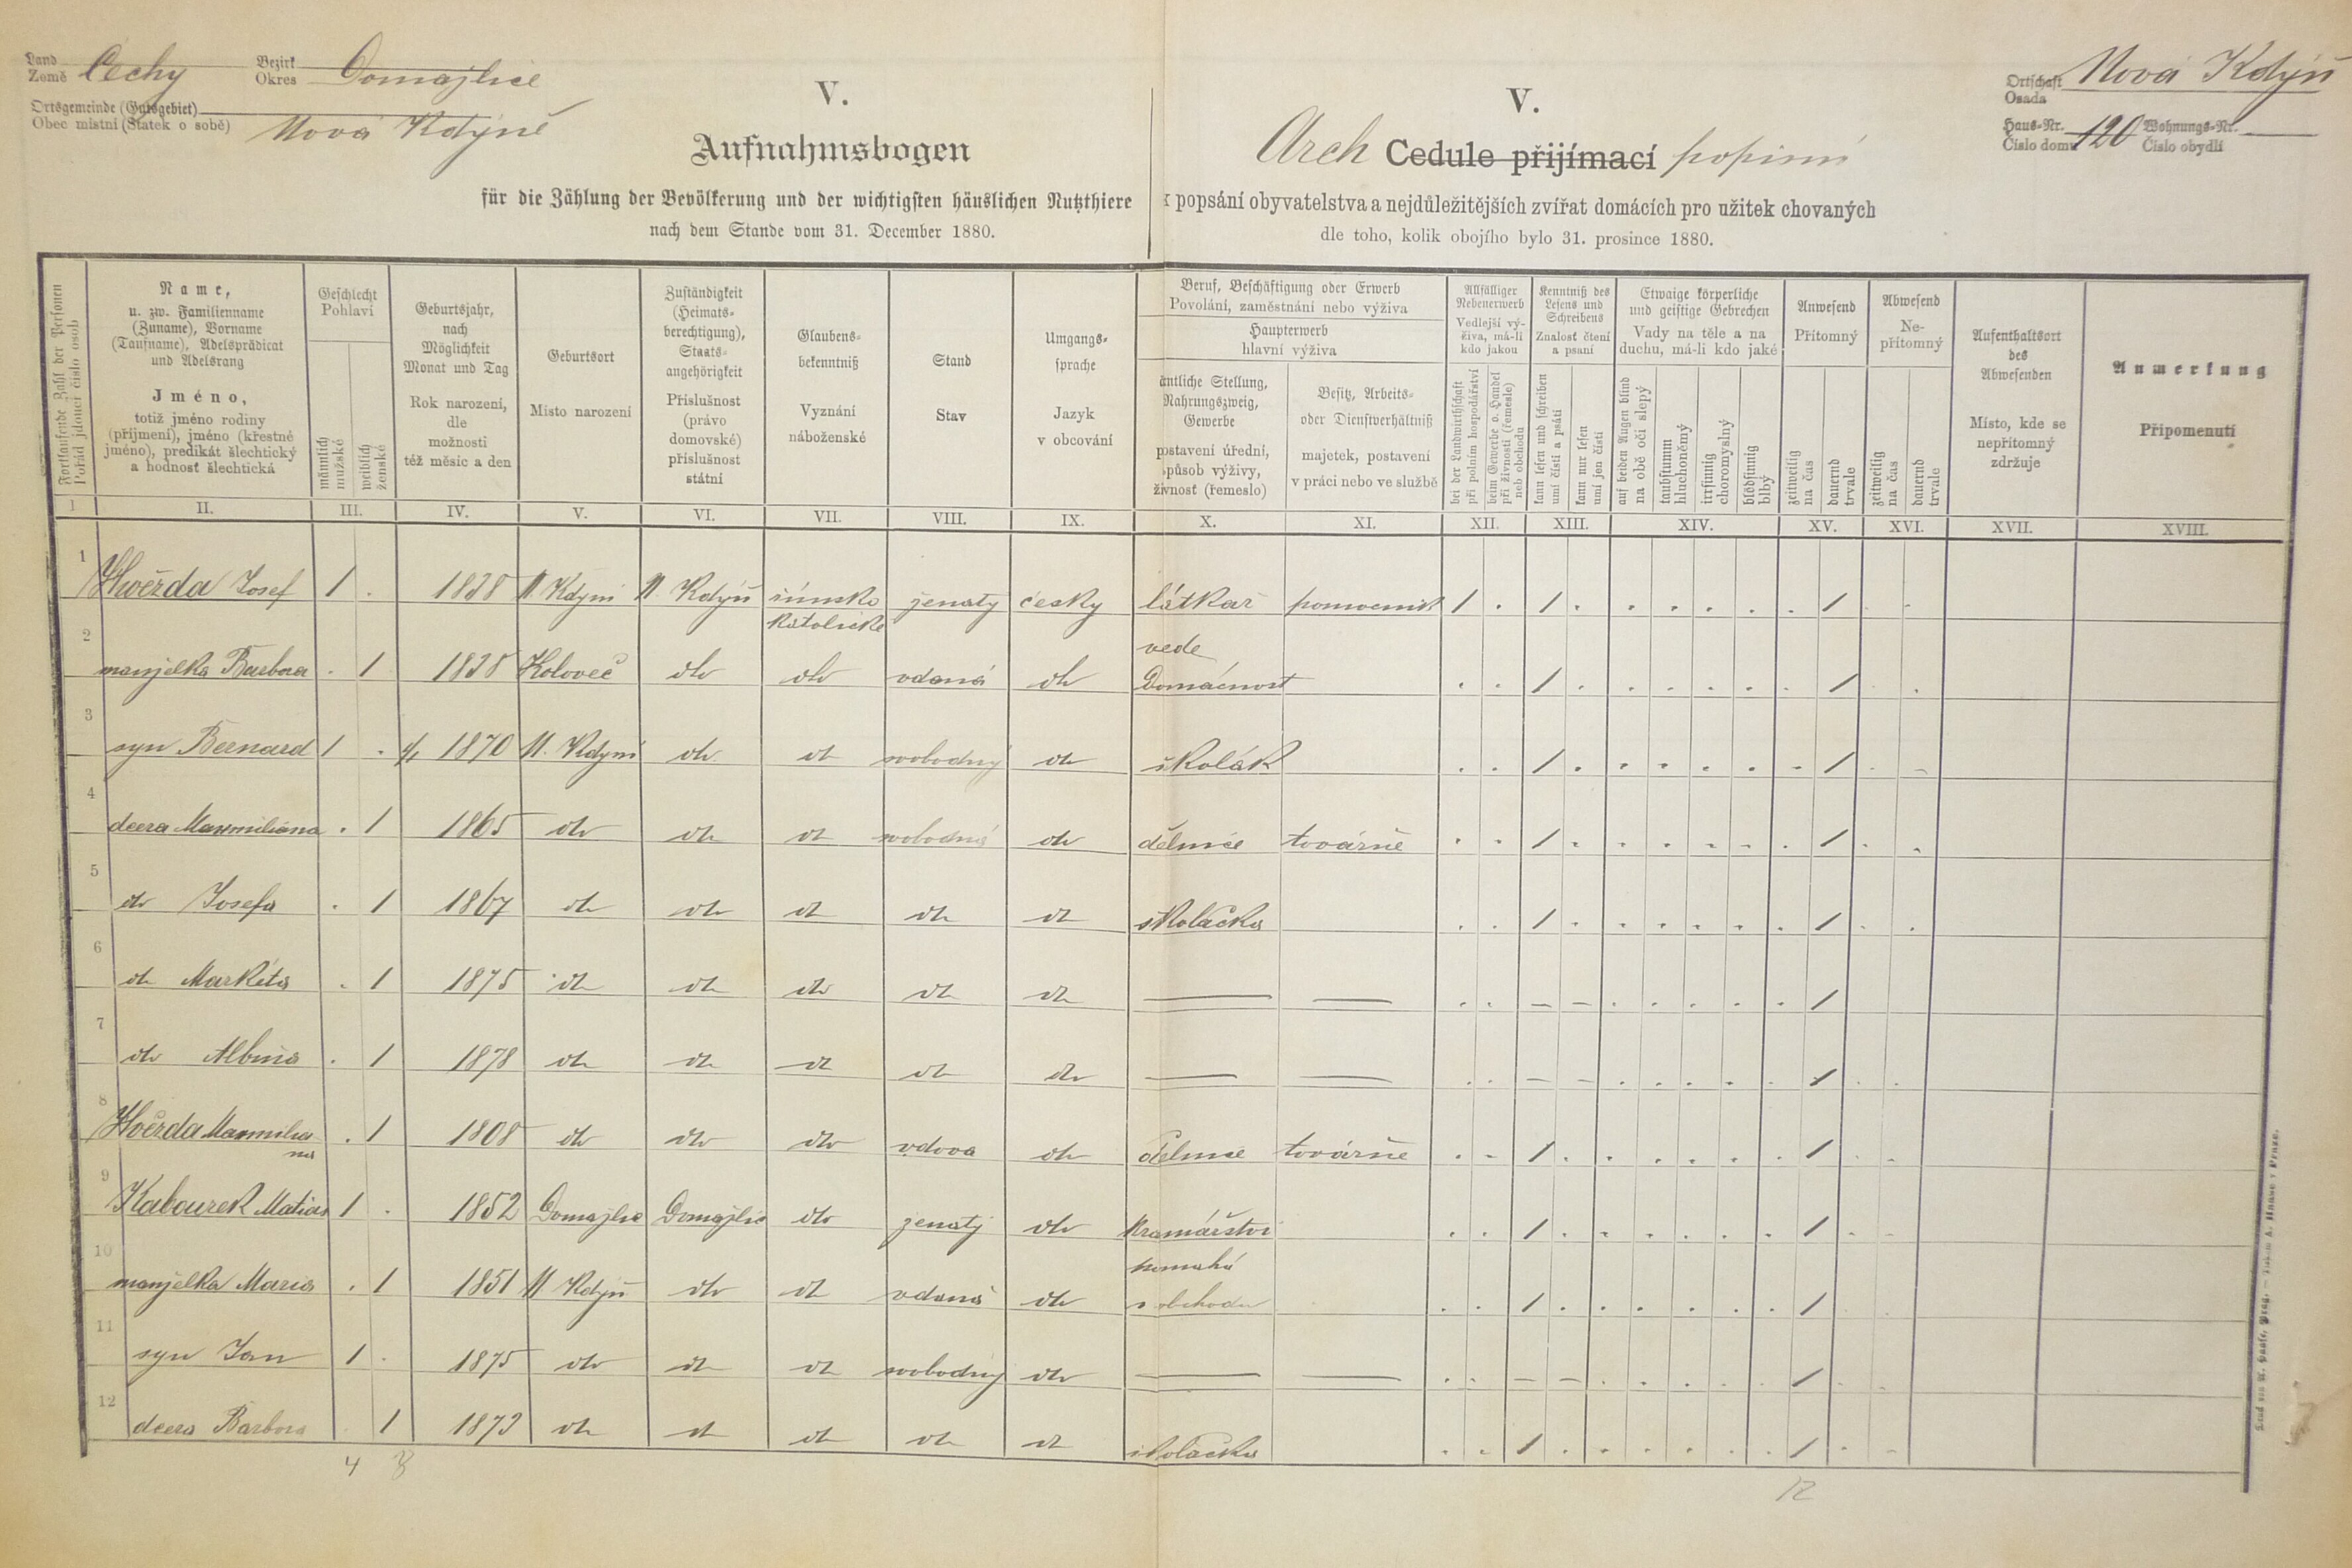 Land
Země Čechy
Bezirk
Okres Domajlice
Ortsgemeinde (Gutsgebiet)
Obec místní (Statek o sobě) Nová Kdýně
V.
Aufnahmsbogen
für die Zählung der Bevölkerung und der wichtigsten häuslichen Nutzthiere
nach dem Stande vom 31. December 1880.
V.
Arch Cedule přijímací popisní
k popsání obyvatelstva a nejdůležitějších zvířat domácích pro užitek chovaných
dle toho, kolik obojího bylo 31. prosince 1880.
Ortschaft
Osada Nová Kdýň
Haus-Nr.
Číslo domu 120
Wohnungs-Nr.
Číslo obydlí
Fortlaufende Zahl der Personen
Pořád jdoucí číslo osob
Name,
u. zw. Familienname
(Zuname), Vorname
(Taufname), Adelsprädicat
und Adelsrang
Jméno,
totiž jméno rodiny
(příjmení), jméno (křestné
jméno), predikát šlechtický
a hodnosť šlechtická
Geschlecht
Pohlaví
männlich
mužské
weiblich
ženské
Geburtsjahr,
nach
Möglichkeit
Monat und Tag
Rok narození,
dle
možnosti
též měsíc a den
Geburtsort
Místo narození
Zuständigkeit
(Heimats-
berechtigung),
Staats-
angehörigkeit
Příslušnost
(právo
domovské)
příslušnost
státní
Glaubens-
bekenntniß
Vyznání
náboženské
Stand
Stav
Umgangs-
sprache
Jazyk
v obcování
Beruf, Beschäftigung oder Erwerb
Povolání, zaměstnání nebo výživa
Haupterwerb
hlavní výživa
ämtliche Stellung,
Nahrungszweig,
Gewerbe
postavení úřední,
způsob výživy,
živnosť (řemeslo)
Besitz, Arbeits-
oder Dienstverhältniß
majetek, postavení
v práci nebo ve službě
Allfälliger
Nebenerwerb
Vedlejší vý-
živa, má-li
kdo jakou
bei der Landwirthschaft
při polním hospodářství
beim Gewerbe o. Handel
při živnosti (řemesle)
neb obchodu
Kenntniß des
Lesens und
Schreibens
Znalosť čtení
a psaní
kann lesen und schreiben
umí čísti a psáti
kann nur lesen
umí jen čísti
Etwaige körperliche
und geistige Gebrechen
Vady na těle a na
duchu, má-li kdo jaké
auf beiden Augen blind
na obě oči slepý
taubstumm
hluchoněmý
irrsinnig
choromyslný
blödsinnig
blbý
Anwesend
Přítomný
zeitweilig
na čas
dauernd
trvale
Abwesend
Ne-
přítomný
zeitweilig
na čas
dauernd
trvale
Aufenthaltsort
des
Abwesenden
Místo, kde se
nepřítomný
zdržuje
Anmerkung
Připomenutí
I II. III. IV. V. VI. VII. VIII. IX. X. XI. XII. XIII. XIV. XV. XVI. XVII. XVIII.
1 Hvězda Josef 1 . 1838 N. Kdyni N. Kdýň římsko katolické ženatý česky látkař pomocník 1 . 1 . . . . . . 1 . .
2 manželka Barbora . 1 1838 Koloveč dto dto vdaná dto vede Domácnost . . 1 . . . . . . 1 . .
3 syn Bernard 1 . 4/1 1870 N. Kdyni dto dto svobodný dto školák . . 1 . . . . . - 1 . -
4 dcera Maxmiliána . 1 1865 dto dto dto svobodná dto dělnice továrně . . 1 . . . . . . 1 . .
5 dto Josefa . 1 1867 dto dto dto dto dto školačka . . 1 . . . . . . 1 . .
6 dto Markéta . 1 1875 dto dto dto dto dto — — . . – – . . . . . 1
7 dto Albina . 1 1878 dto dto dto dto dto — — . . – – . . . . . 1 . .
8 Hvězda Maxmiliana . 1 1808 dto dto dto vdova dto dělnice továrně . - 1 . . . . . . 1 . .
9 Kabourek Matias 1 . 1852 Domajlic Domajlic dto ženatý dto kramářství . . 1 . . . . . . 1 . .
10 manželka Maria . 1 1851 N Kdýň dto dto vdaná dto pomahá v obchodu . . 1 . . . . . . 1 . .
11 syn Jan 1 . 1875 dto dto dto svobodný dto — — . . – – . . . . . 1 . .
12 dcera Barbora . 1 1873 dto dto dto dto dto školačka . . 1 . . . . . . 1 . .
4 8
12